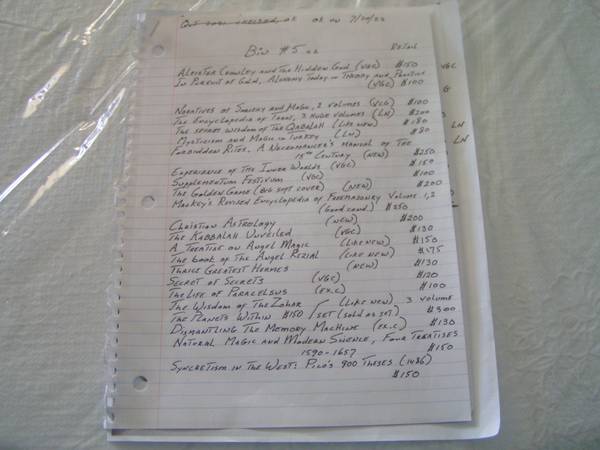 as on 7/20/22
Bin #5
RETAIL
Aleister Crowley and The Hidden God (VGC) $150
In Pursuit of Gold, Alchemy Today in Theory and Practice
(VGC) $100
Narratives of Sorcery and Magic, 2 volumes (VCG) $100
The Encyclopedia of Tarot, 3 huge volumes (LN) $200
The secret wisdom of the Qabalah (like new) $180
Mysticism and Magic in Turkey (LN) $80
Forbidden Rites, A Necromancer's Manual of The
15th Century (new) $250
Experience of The Inner Worlds (VGC) $150
Supplementum Festivum (VGC) $100
The Golden Game (big soft cover) (new) $200
Mackey's Revised Encyclopedia of Freemasonry Volume 1,2
(Good cond.) $250
Christian Astrology (new) $200
The Kabbalah Unveiled (VGC) $130
A Treatise on Angel Magic (like new) $150
The book of The Angel Rezial (like new) $175
Thrice Greatest Hermes (new) $130
Secret of Secrets (VGC) $120
The Life of Paracelsus (ex.c) $100
The Wisdom of The Zohar (like new) 3 volume
The Planets Within $150 set (sold as set) $300
Dismantling The Memory Machine (ex.c) $130
Natural Magic and Modern Science, Four Treatises
1590-1657 $150
Syncretism in the West: Pico's 900 Theses (1486)
$150
VGC
G
LN
LN